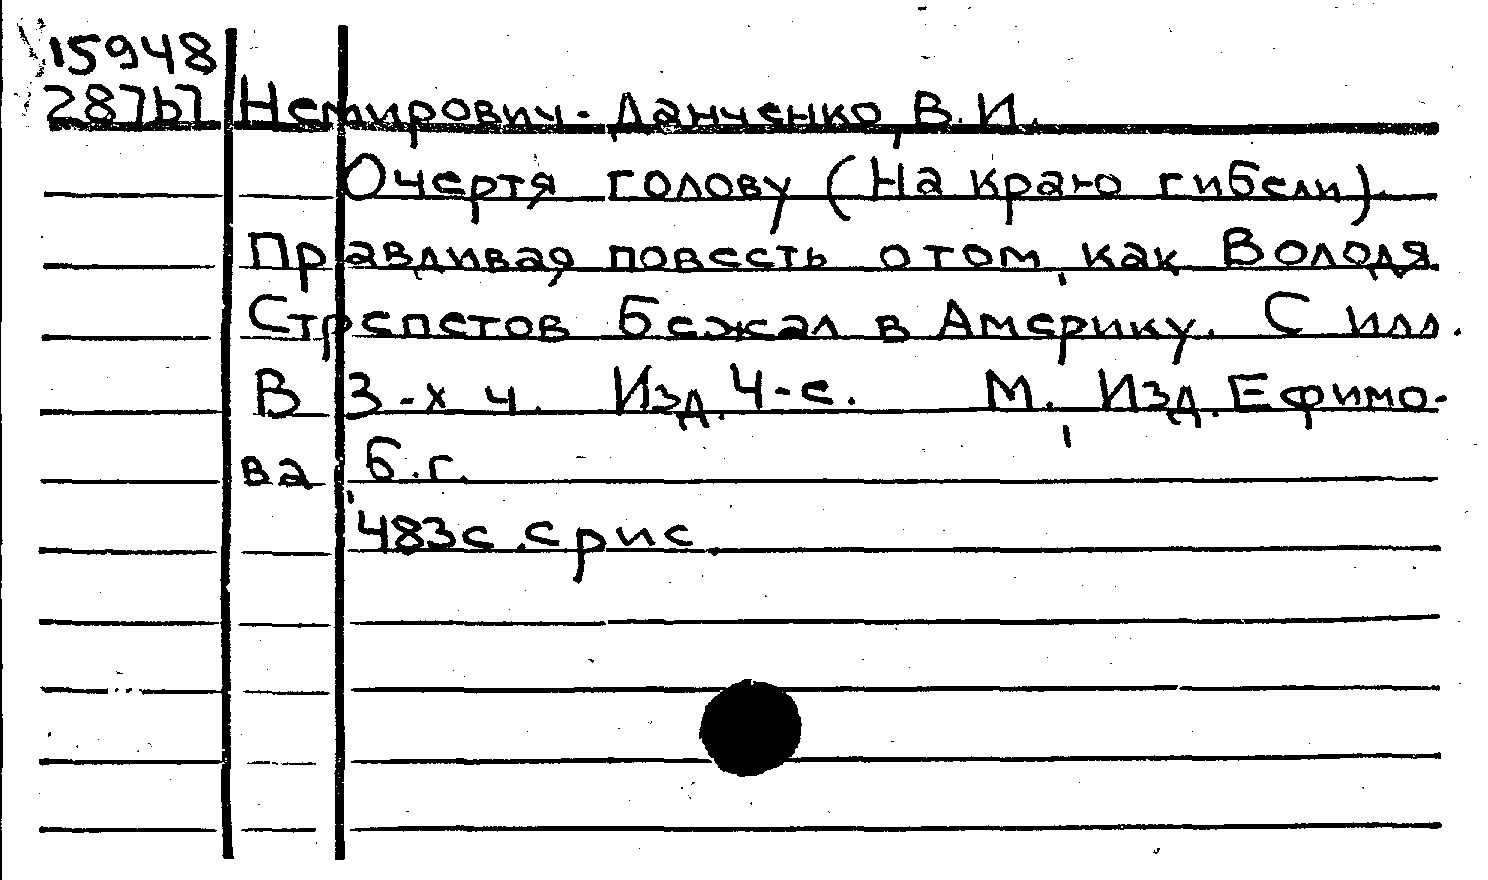 15948
287b7 Немирович-Данченко, В.И.
Очертя голову (На краю гибели).
Правдивая повесть о том, как Володя
Стрепетов бежал в Америку. С илл.
В 3-х ч. Изд. 4-е. М., Изд. Ефимо-
ва, б.г.
483с. с рис.